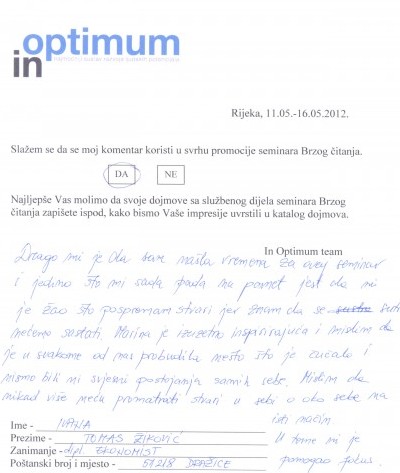 in optimum
Rijeka, 11.05.-16.05.2012.
Slažem se da se moj komentar koristi u svrhu promocije seminara Brzog čitanja.
DA NE
Najljepše Vas molimo da svoje dojmove sa službenog dijela seminara Brzog
čitanja zapišete ispod, kako bismo Vaše impresije uvrstili u katalog dojmova.
In Optimum team
Drago mi je da sam našla vremena za ovaj seminar
i jedino što mi sada pada na pamet jest da mi
je žao što pospremam stvari jer znam da se sutra
nećemo sastati. Marina je izuzetno inspirirajuća i mislim da
je u svakome od nas probudila nešto što je čučalo i
nismo bili ni svjesni postojanja samih sebe. Mislim da
nikad više neću promatrati stvari u sebi o oko sebe na
isti način
U tome mi je
pomogao fokus.
Ime - IVANA
Prezime - TOMAS ŽIKOVIĆ
Zanimanje - dipl. EKONOMIST
Poštanski broj i mjesto - 51218 DRAŽICE